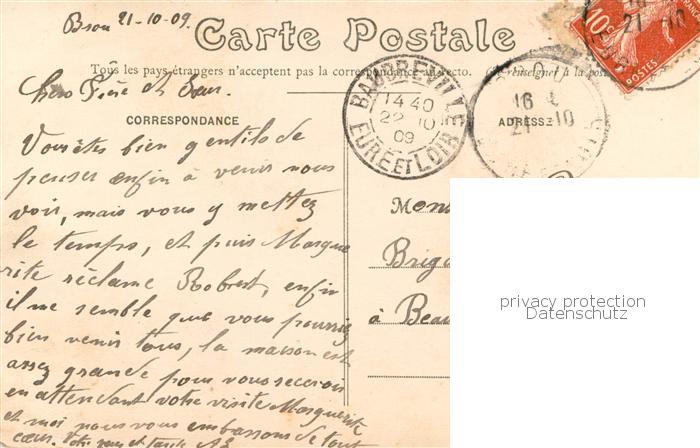 21-10-09.
Carte Postale
Tous les pays étrangers n'acceptent pas la correspondance au recto. (Se renseigner à la poste
Chers Frère et Sœur.
CORRESPONDANCE
ADRESSE
BAUDREVILLE
14 40
22 10
09
EURE ET LOIR
16
21 10
10c
POSTES
21 10
Vous êtes bien gentils de
penser enfin à venir nous
voir, mais vous y mettez
le temps, et puis Margue
rite réclame Robert, enfin
il me semble que vous pourriez
bien venir tous, la maison est
assez grande pour vous recevoir
en attendant votre visite Marguerite
et moi nous vous embrassons de tout
cœur. Votre et
Mons
Briga
à Beau
privacy protection
Datenschutz